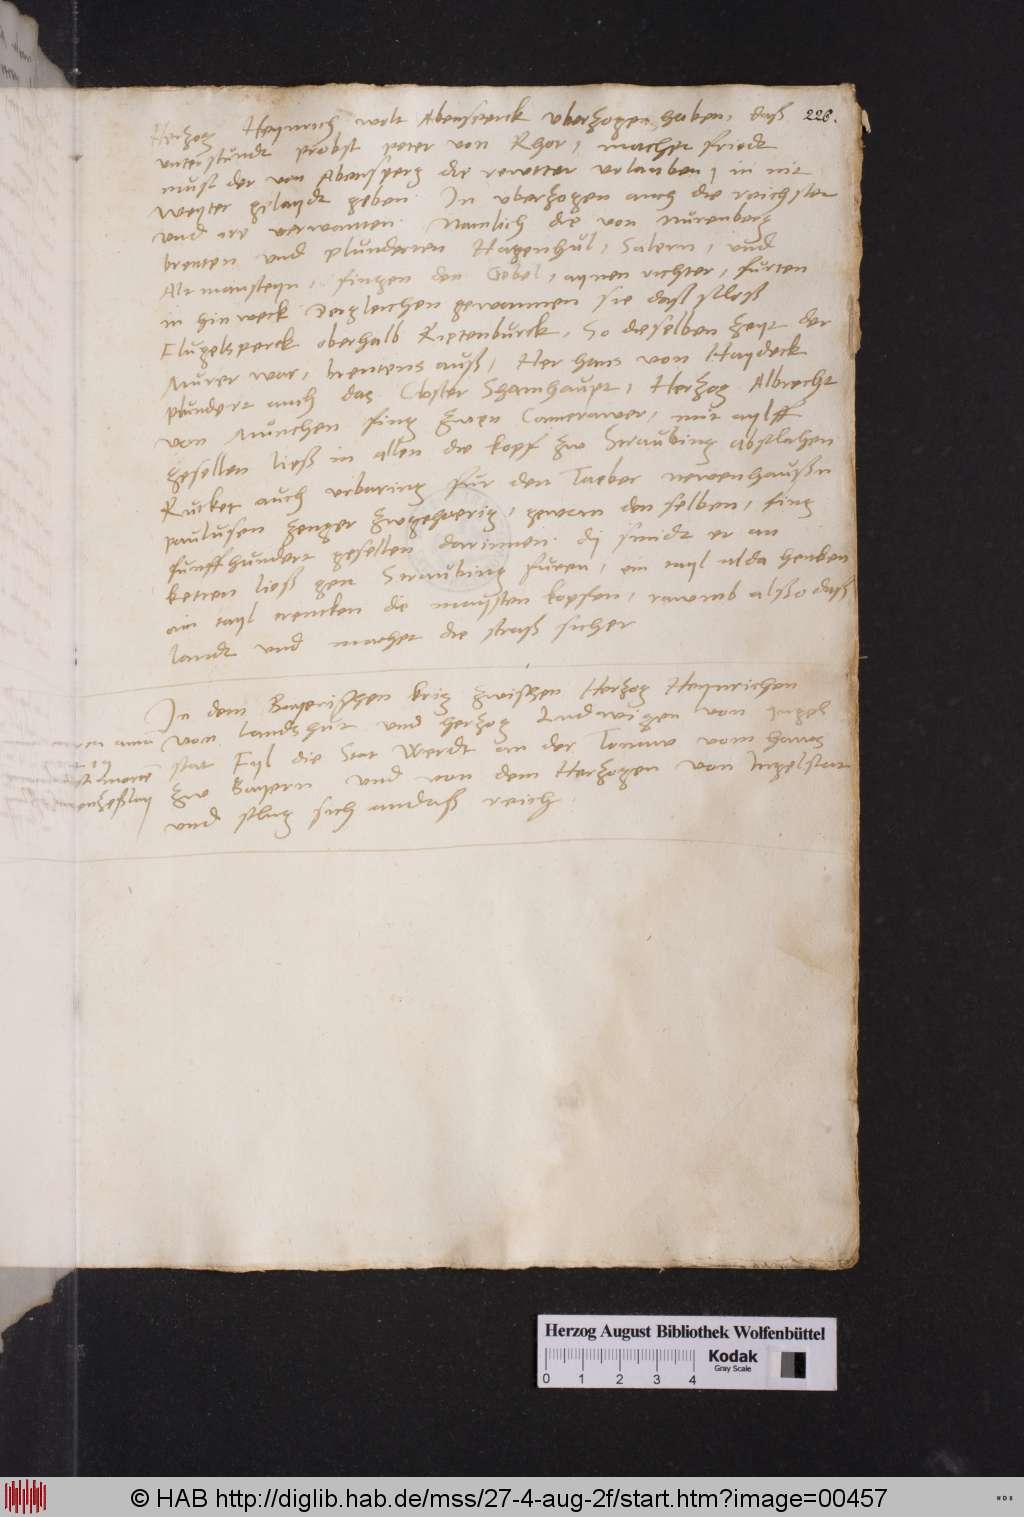 228.
Herzog Heynrich wolt Abensperck vberzogen haben, daß
vnterstundt probst peter von Rhor, machet friedt
must der von Abensperg die rewtter vrlauben, in nit
weyter glaydt geben. In vberzogen auch die reichster
vnd ire verwanten. Namlich die von Nurenberg
brenten vnd plunderten Hagenhul, Salern, vnd
Altmansteyn, fingen den Gebel, aynen richter, furten
in hinweck Dergleichen gewonnen sie daß schloß
Flugelsperck oberhalb Rietenburck, So dieselben Zeyt der
Murer war, brentens auß, Her hans von Haydeck
plundert auch das Closter Shamhaupt, Herzog Albrecht
von Munchen fing zwen Camerawer, mit aylff
gesellen ließ in allen die kopf zw Straubing abschlahen
Rucket auch vrbaring für den Taeber newenhaußn
paulusen zenger zwgehoerig, gewan den selben, fing
funffhundert gesellen darinnen. dj smidt er an
ketten ließ gen Straubing furen, ein tayl alda henken
ain tayl trencken die maysten kopfen, rawmb alßo daß
landt vnd machet die straß sicher
In dem Bayerischen krig zwischen Herzog Heynrichen
von landshut vnd herzog Ludwigen von Ingel
stat Fyl die Stat Werdt an der Tonaw vom hawß
zw Bayern vnd von dem Herzogen von Ingelstat
vnd schlug sich an daß reich.
Herzog August Bibliothek Wolfenbüttel
Kodak
Gray Scale
0 1 2 3 4
© HAB http://diglib.hab.de/mss/27-4-aug-2f/start.htm?image=00457